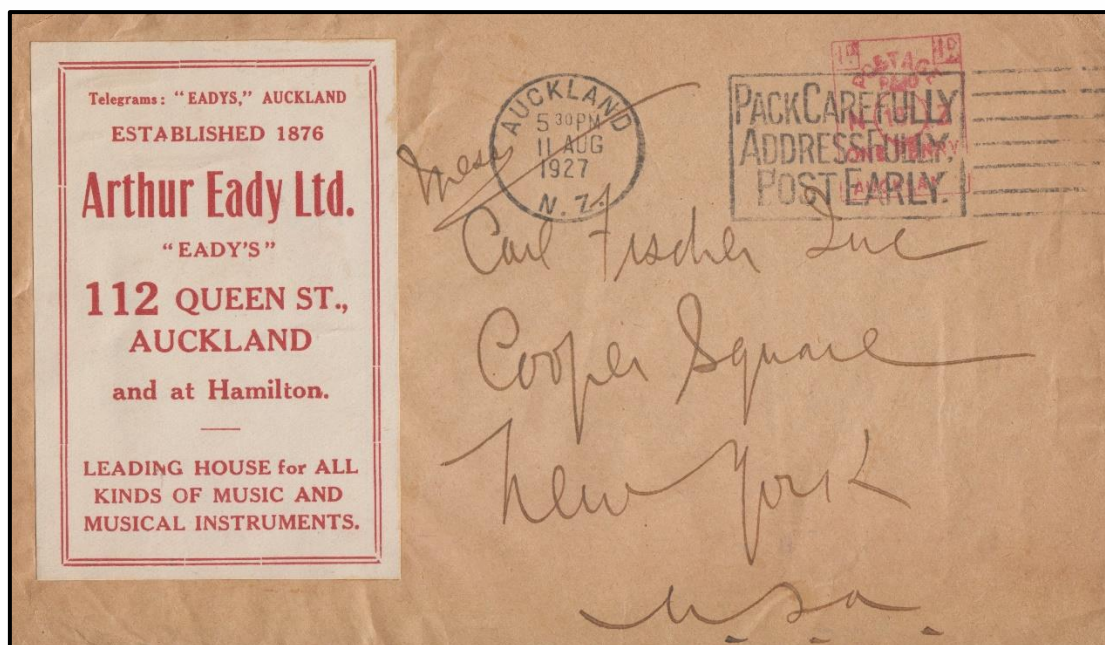 Telegrams: "EADYS," AUCKLAND
ESTABLISHED 1876
Arthur Eady Ltd.
"EADY'S"
112 QUEEN ST.,
AUCKLAND
and at Hamilton.
LEADING HOUSE for ALL
KINDS OF MUSIC AND
MUSICAL INSTRUMENTS.
AUCKLAND
5 30 PM
11 AUG
1927
N.Z.
PACK CAREFULLY
ADDRESS FULLY.
POST EARLY.
1D 1D
POSTAGE
PAID
ONE PENNY
AUCKLAND
Carl Fischer Inc
Cooper Square
New York
U.S.a.